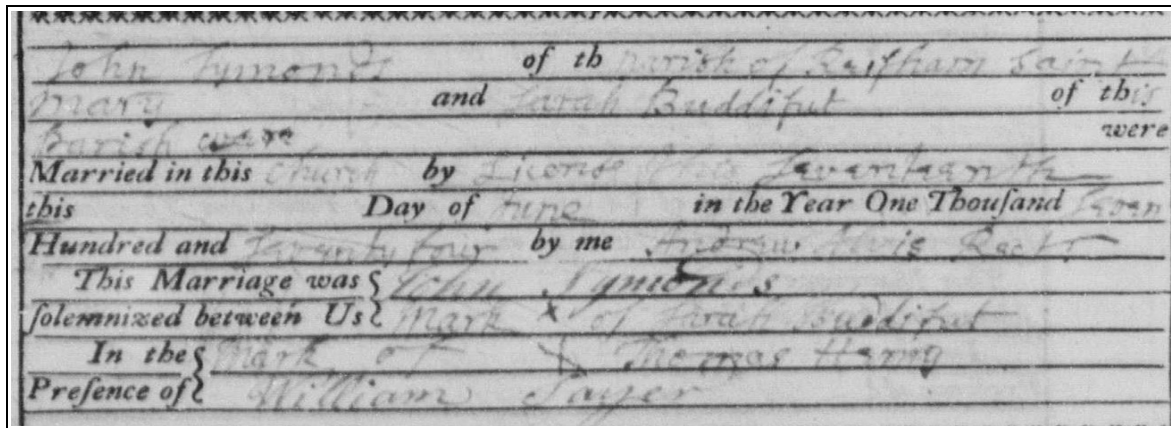 John Symonds of th parish of Reifham Saint
Mary and Sarah Buddifut of this
Parish were were
Married in this Church by Licence this Sevanteenth
this Day of June in the Year One Thouſand Seven
Hundred and Seventy four by me Andrew Rectr
This Marriage was John Symonds
ſolemnized between Us Mark X of Sarah Buddifut
In the Mark of X Thomas
Preſence of William Sayer